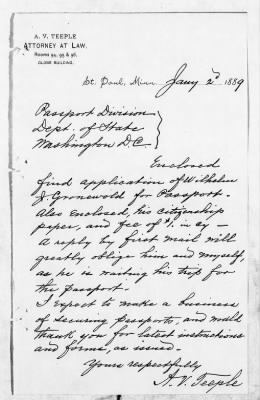 A. V. TEEPLE
ATTORNEY AT LAW.
ROOMS 94, 95 & 96,
GLOBE BUILDING.
St. Paul, Minn. Jany 2d 1889
Passport Division
Dept. of State
Washington D.C.
Enclosed
find application of Wilhelm
J. Gronewold for Passport.
Also enclosed, his citizenship
paper, and fee of $1. in cy —
A reply by first mail will
greatly oblige him and myself,
as he is waiting his trip for
the passport.
I expect to make a business
of securing passports, and will
thank you for latest instructions
and forms, as issued.
Yours respectfully
A. V. Teeple